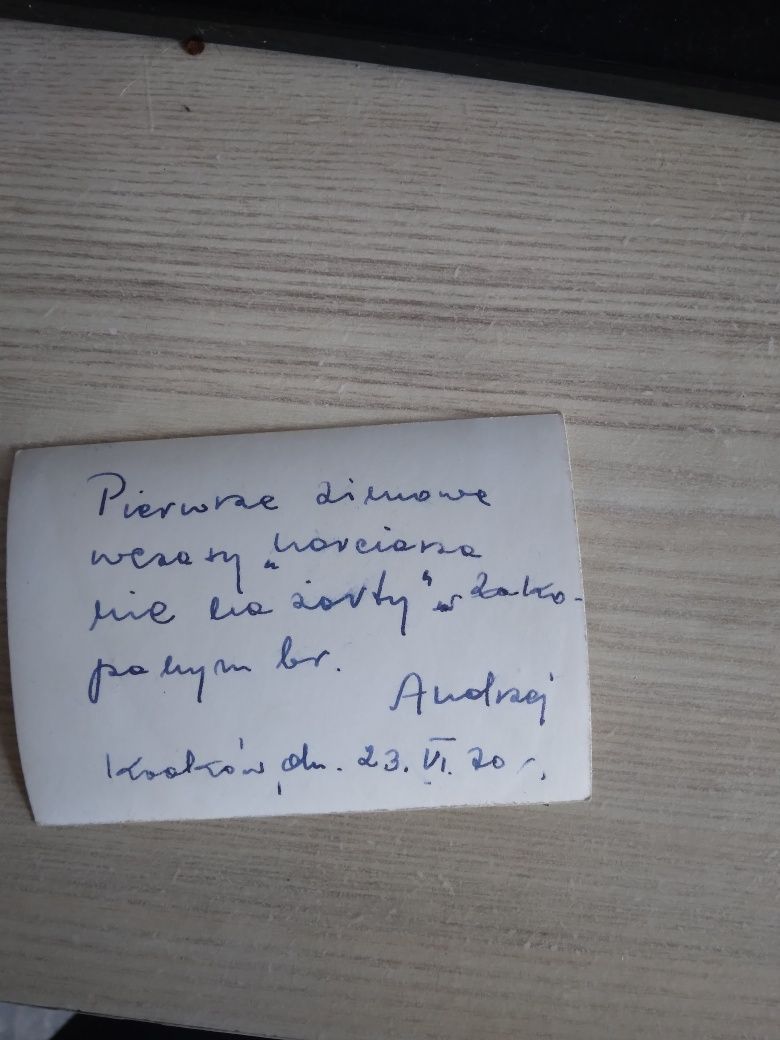 Pierwsze zimowe
wczasy „narciarza
nie na żarty" w Zako-
panym br.
Andrzej
Kraków, dn. 23. VI. 70 r.